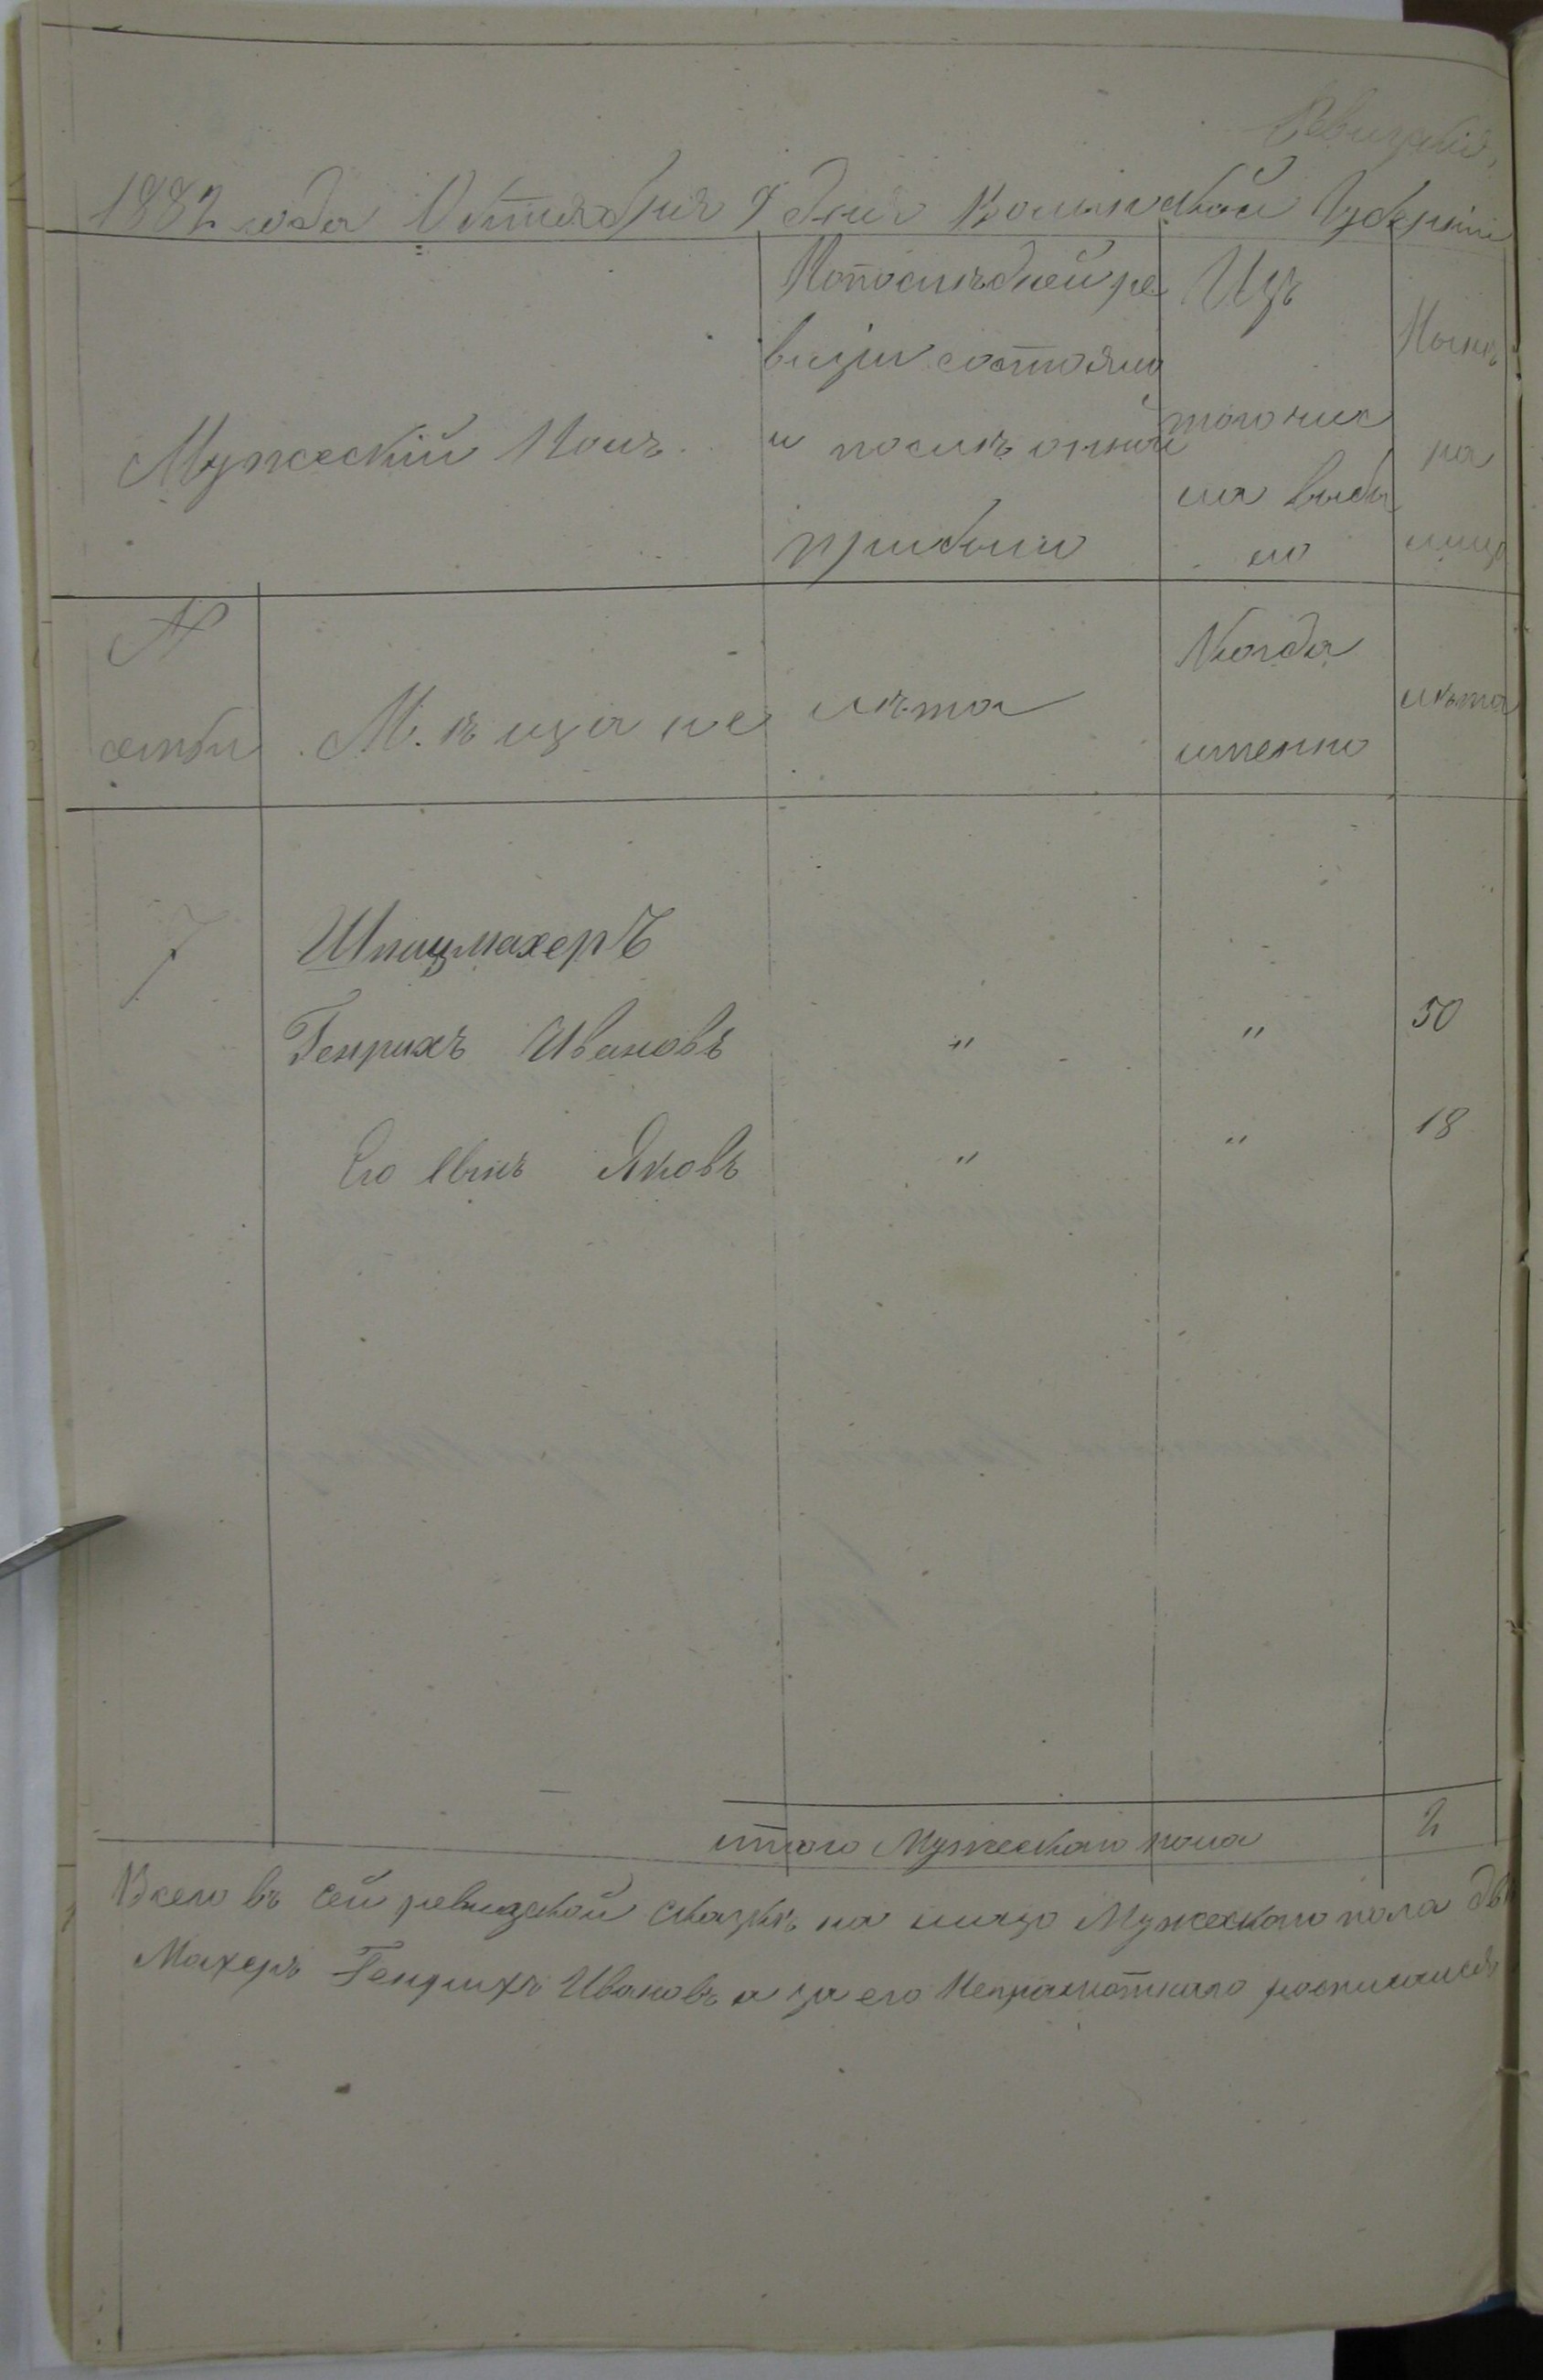 Ревизская
1882 года Октября 9 дня Волынской Губерніи
Мужескій Полъ.
Попослѣдней ре
визіи состояло
и послѣ оной
прибыло
Изъ
того чис
ла выбы
ло
Нынѣ
на
лицо
№
семьи
Мѣщане
лѣта
Когда
именно
лѣта
7
Шпицмахеръ
Генрихъ Ивановъ " " 50
Его Сынъ Яковъ " " 18
итого Мужескаго пола 2
Всего въ сей ревизской сказкѣ на лицо Мужескаго пола двѣ
Махеръ Генрихъ Ивановъ а за его Неграмотнаго росписался